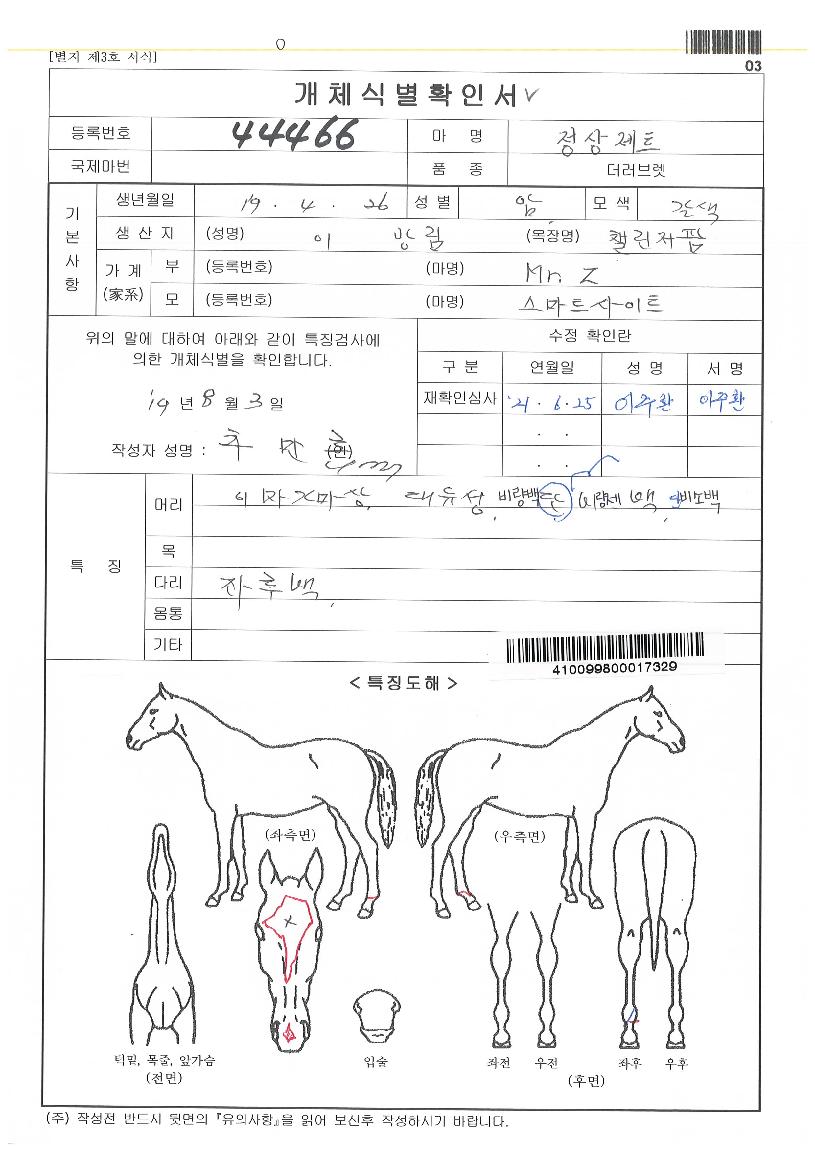 [별지 제3호 서식]
03
개체식별확인서
등록번호 44466 마 명 정상제트
국제마번 품 종 더러브렛
기본사항
생년월일 19 . 4 . 26 성 별 암 모 색 갈색
생 산 지 (성명) 이 광림 (목장명) 챌린저팜
가 계 (家系) 부 (등록번호) (마명) Mr. Z
모 (등록번호) (마명) 스마트사이트
위의 말에 대하여 아래와 같이 특징검사에
의한 개체식별을 확인합니다.
'19 년 8 월 3 일
작성자 성명 : (인)
수정 확인란
구 분 연월일 성 명 서 명
재확인심사 '21 . 6 . 25 이주환 이주환
. .
. .
특 징
머리 대유성 비량백 백 비소백
목
다리 좌후백
몸통
기타
410099800017329
< 특징도해 >
(좌측면) (우측면)
턱밑, 목줄, 앞가슴
(전면)
입술
좌전 우전 좌후 우후
(후면)
(주) 작성전 반드시 뒷면의 『유의사항』을 읽어 보신후 작성하시기 바랍니다.